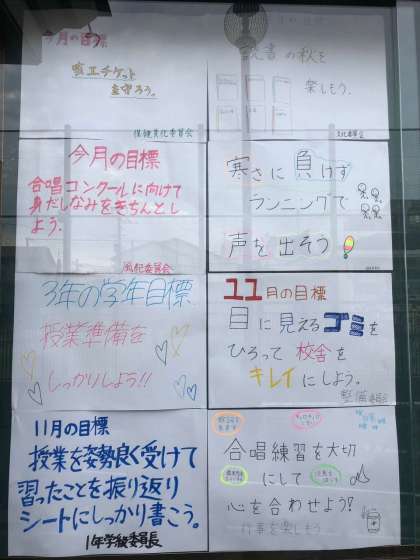 今月の目標
咳エチケット
を守ろう。
保健美化委員会
読書の秋を
楽しもう。
文化委員会
今月の目標
合唱コンクールに向けて
身だしなみをきちんとし
よう。
風紀委員会
寒さに負けず
ランニングで
声を出そう
3年の学年目標
授業準備を
しっかりしよう!!
11月の目標
目に見えるゴミを
ひろって校舎を
キレイにしよう。
整備委員会
11月の目標
授業を姿勢良く受けて
習ったことを振り返り
シートにしっかり書こう。
1年学級委員長
合唱練習を大切
にして
心を合わせよう?
行事を楽しもう